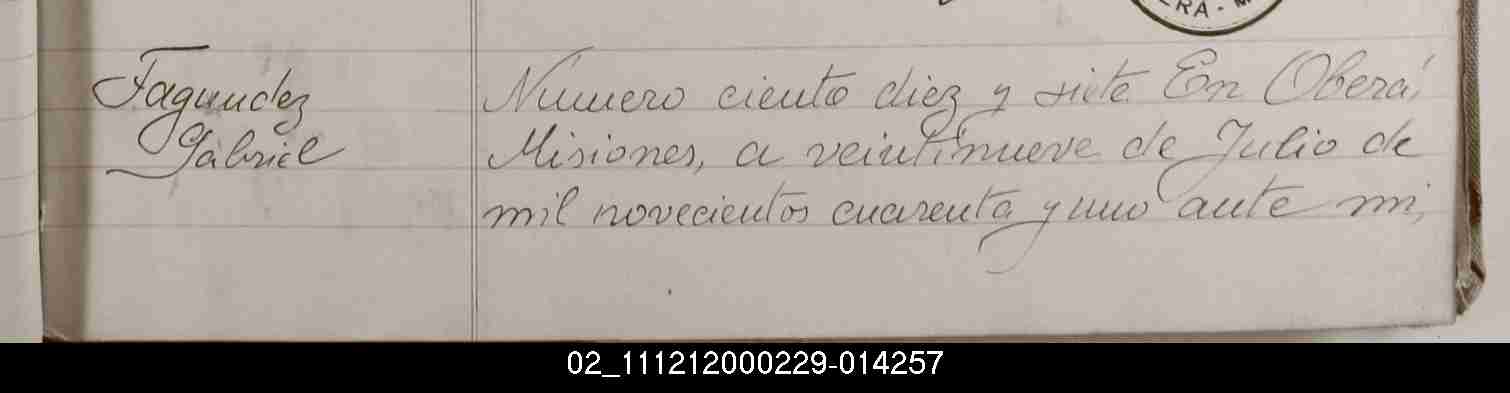 ERA - M
Fagundez
Gabriel
Número ciento diez y siete En Oberá,
Misiones, a veintinueve de Julio de
mil novecientos cuarenta y uno ante mi,
02_111212000229-014257